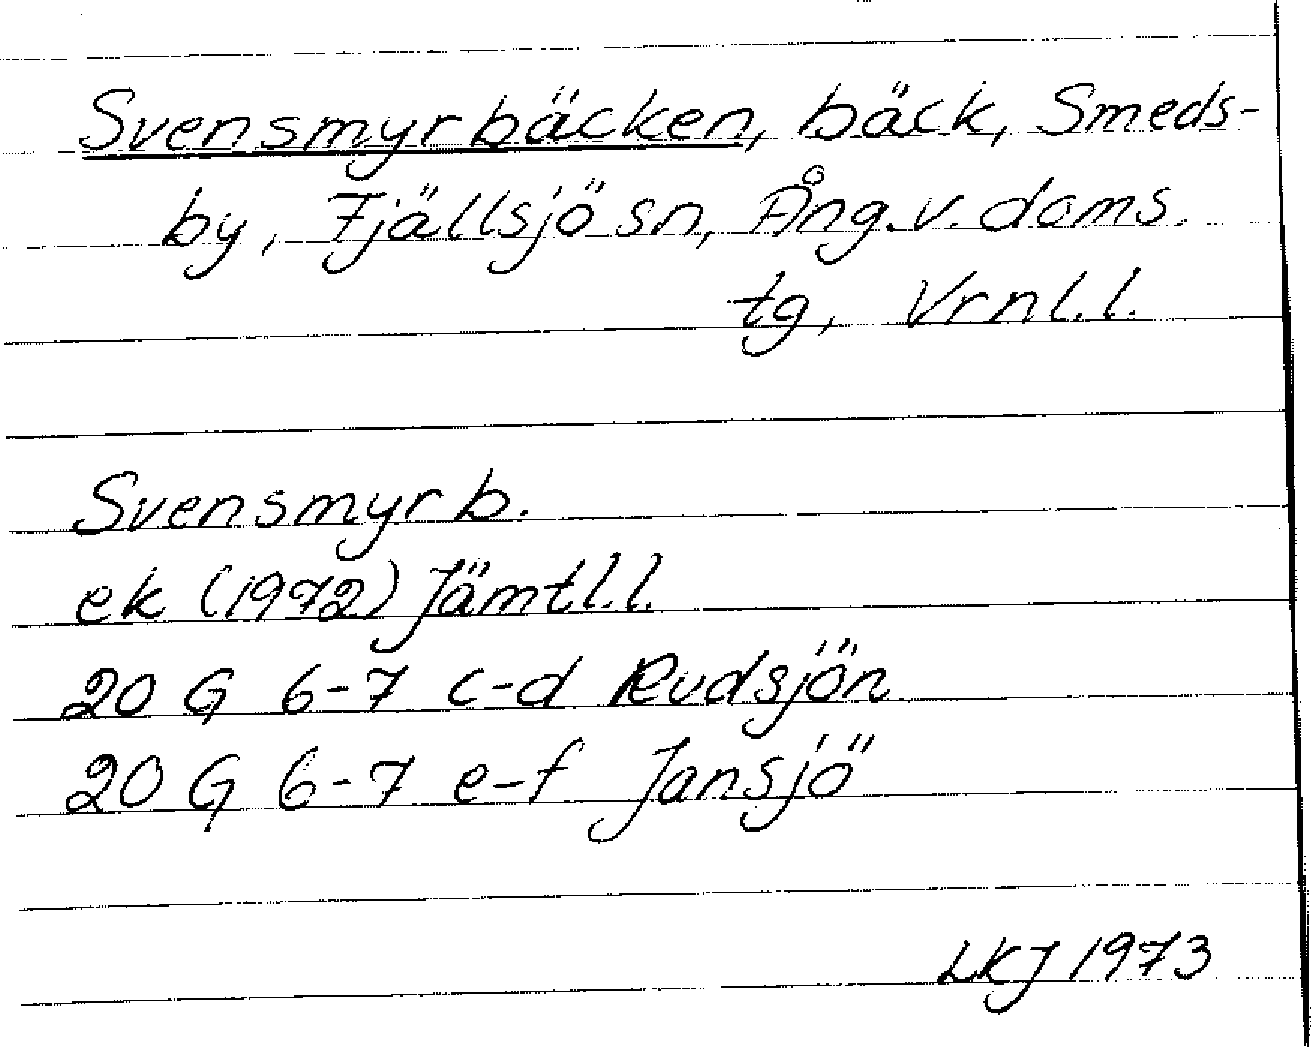 Svensmyrbäcken, bäck, Smeds-
by, Fjällsjö sn, Ång.v. doms.
tg, Vrnl.l.
Svensmyrb.
ek (1972) Jämtl.l.
20 G 6-7 c-d Rudsjön
20 G 6-7 e-f Jansjö
LKJ 1973